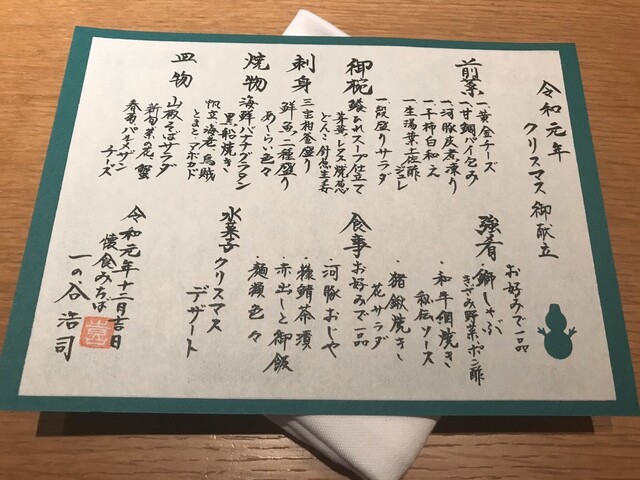 令和元年
クリスマス御献立
前菜
一、黄金チーズ
一、甘鯛パイ包み
一、河豚皮煮凍り
一、干柿白和え
一、生湯葉土佐酢ジュレ
一、段盛りサラダ
御椀
スープ仕立て
どんこ 針葱 生姜
刺身
三宝柑釜盛り
鮮魚二種盛り
あしらい色々
焼物
海鮮バーナグラタン
黒船焼き
帆立、海老、烏賊
とまと、アボカド
皿物
山板そばサラダ
新旬菜の花、蟹
春菊パルメザンチーズ
強肴
お好みで一品
・鰤しゃぶ
きざみ野菜、ポン酢
・和牛網焼き
秘伝ソース
・猪鍬焼き
花サラダ
食事
お好みで一品
・河豚おじや
・糀鯖茶漬
・赤出しと御飯
・麺類色々
水菓子
クリスマス
デザート
令和元年十二月吉日
懐食みちば
一の谷浩司